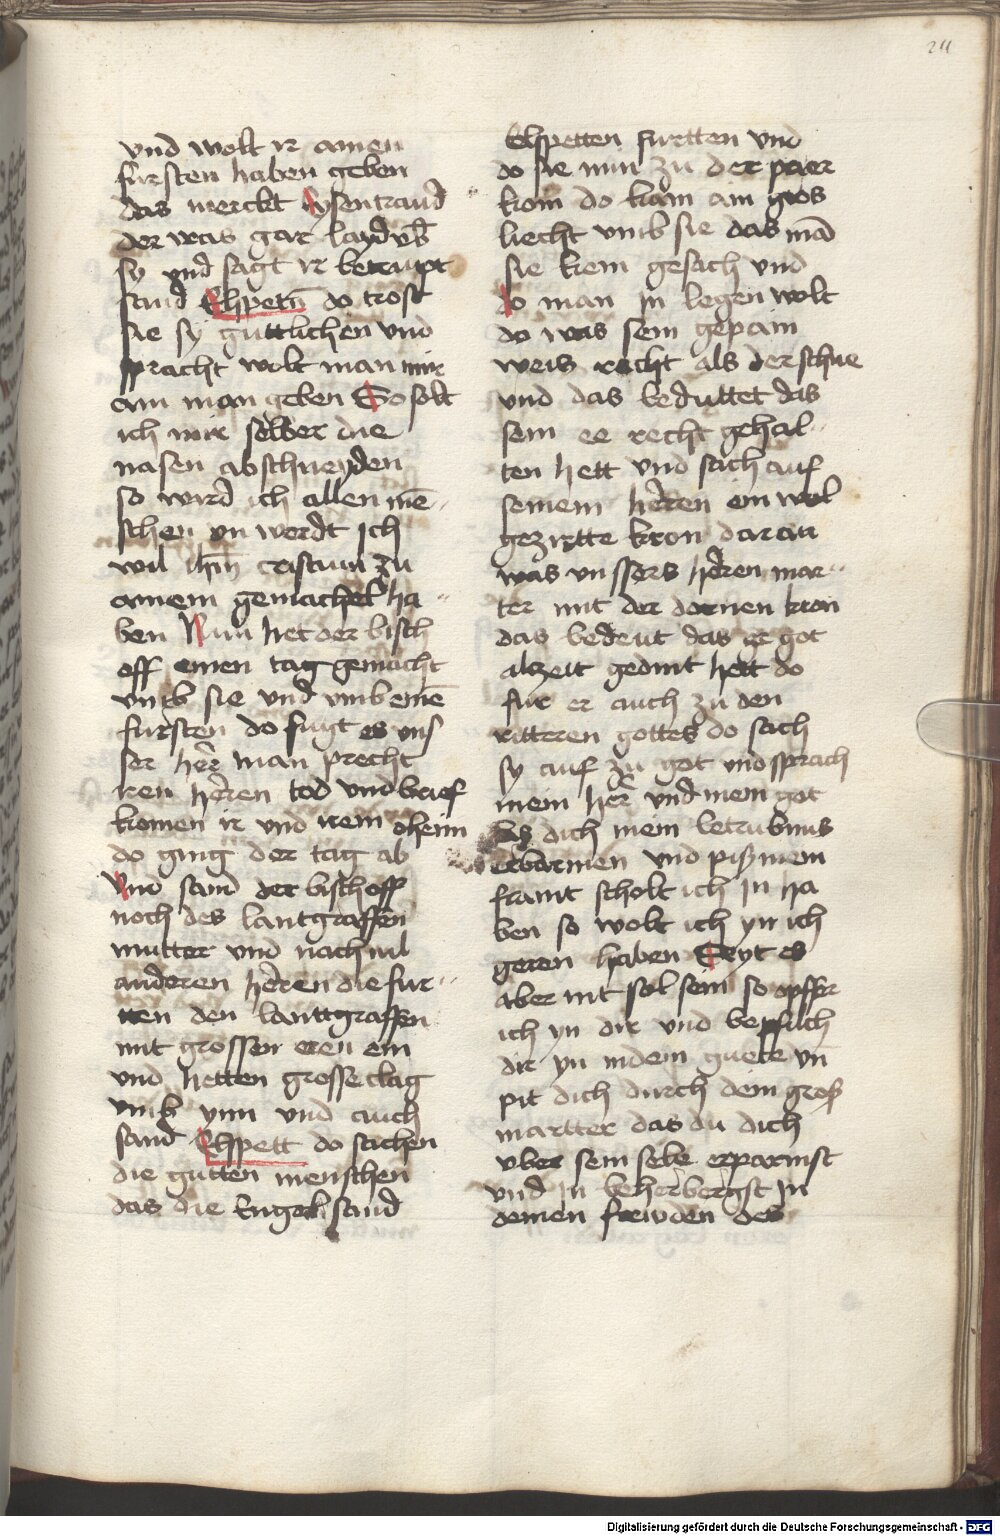 24
vnd wolt ir ainen
fursten haben geben
das merckt Eysentraud
der was gar layd vb̄
sy vnd sagt ir
sand Elspetn̄ do trost
sie sy guttlichen vnd
spracht wolt man mir
ain man geben So solt
ich mir selber die
nasen abschneyden
so wird ich allen mē
schen vn werdt Ich
wil ihm̄ cristum zu
ainem gemachel ha
ben Nun het der bisch
off einen tag gemacht
vmb sie vnd vmb einē
fursten do fugt es vns
ser her̄ man precht
iren heren tod vnd brief
komen ir vnd irem oheim
do ging der tag ab
Vnd sand der bischoff
noch des lantgraffen
mutter vnd nach vil
anderen heren die fur
ten den lanttgraffen
mit grossen eren ein
vnd hetten grosse clag
vmb ynn vnd auch
sand Elspett do sachen
die gutten menschen
das die Engel sand
Elspetten furtten vnd
do sie nun zu der paar
kom do kam ain gros
liecht vmb sie das mā
sie kem gesach vnd
do man in legen wolt
do was sein gepain
weis recht als der schne
vnd das beduttet das
sein ee recht gehal
ten hett vnd sach auf
seinem heren ein wol
gezirtte kron daran
was vnssers heren mar
ter mit der dornen kron
das bedeut das er got
alzeit gedint hett do
fur er auch zu den
rittren gottes do sach
sy auf zu got vnd sprach
mein her̄ vnd mein got
las dich mein betrubnus
erbarmen vnd piß mein
scholt ich In ha
ben so wolt ich yn ich
geren haben Seyt es
aber nit sol sein so opffer
ich yn dir vnd bepfilch
dir yn in dein guete vn̄
pit dich durch dein groß
martter das du dich
vber sein sele erparmst
vnd In beherbergst In
deinen frewden des
Digitalisierung gefördert durch die Deutsche Forschungsgemeinschaft - DFG